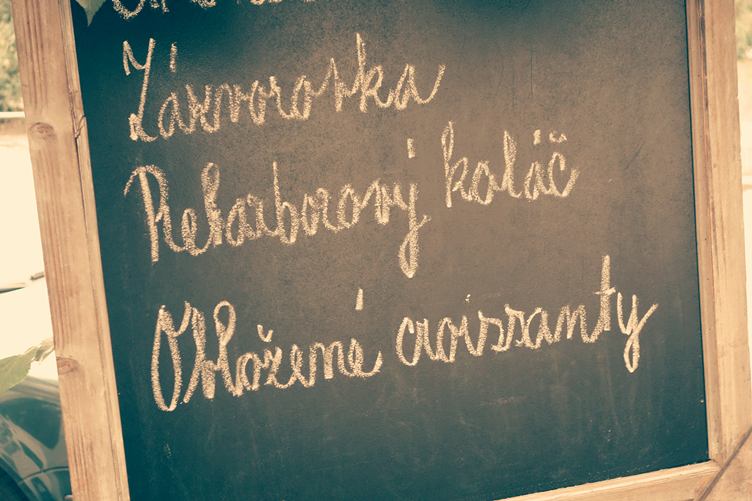 Zázvorovka
Rebarborový koláč
Obložené croissanty